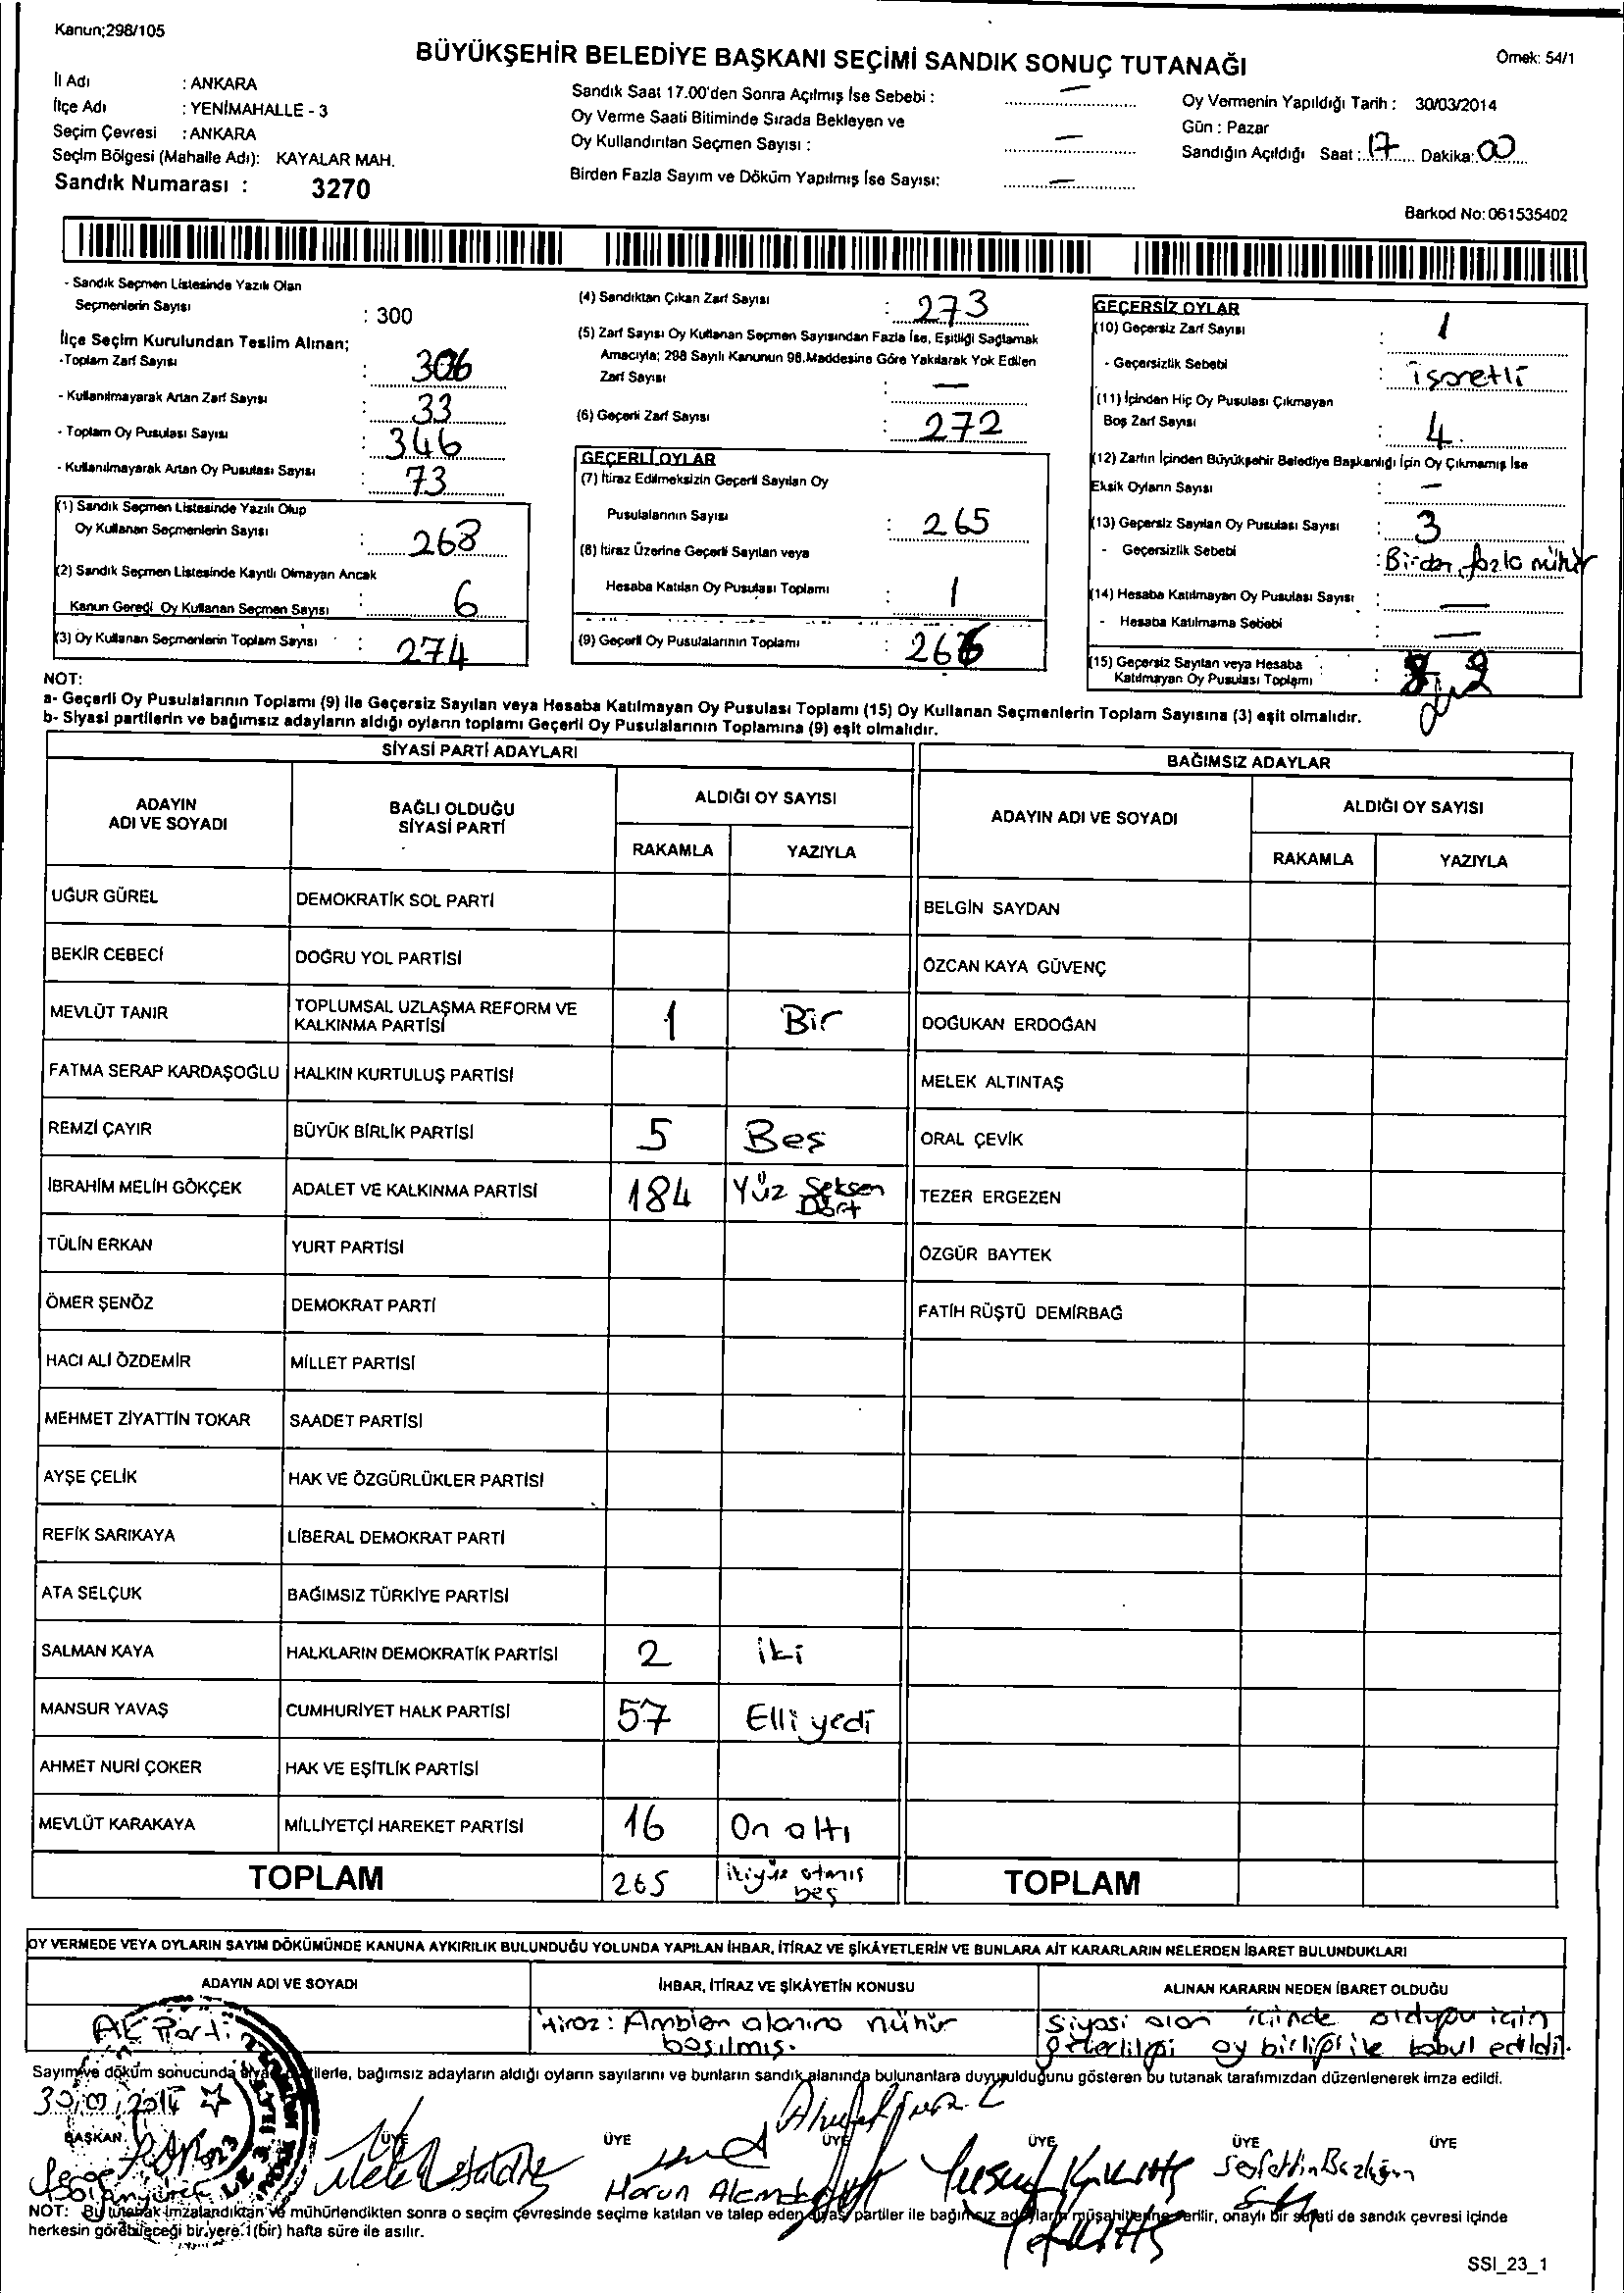 Kanun;298/105
BÜYÜKŞEHİR BELEDİYE BAŞKANI SEÇİMİ SANDIK SONUÇ TUTANAĞI
Örnek: 54/1
İl Adı : ANKARA
İlçe Adı : YENİMAHALLE - 3
Seçim Çevresi : ANKARA
Seçim Bölgesi (Mahalle Adı): KAYALAR MAH.
Sandık Numarası : 3270
Sandık Saat 17.00'den Sonra Açılmış İse Sebebi : —
Oy Verme Saati Bitiminde Sırada Bekleyen ve
Oy Kullandırılan Seçmen Sayısı : —
Birden Fazla Sayım ve Döküm Yapılmış İse Sayısı: —
Oy Vermenin Yapıldığı Tarih : 30/03/2014
Gün : Pazar
Sandığın Açıldığı Saat : 17 Dakika: 00
Barkod No: 061535402
- Sandık Seçmen Listesinde Yazılı Olan
Seçmenlerin Sayısı : 300
İlçe Seçim Kurulundan Teslim Alınan;
-Toplam Zarf Sayısı : 306
- Kullanılmayarak Artan Zarf Sayısı : 33
- Toplam Oy Pusulası Sayısı : 346
- Kullanılmayarak Artan Oy Pusulası Sayısı : 73
(1) Sandık Seçmen Listesinde Yazılı Olup
Oy Kullanan Seçmenlerin Sayısı : 268
(2) Sandık Seçmen Listesinde Kayıtlı Olmayan Ancak
Kanun Gereği Oy Kullanan Seçmen Sayısı : 6
(3) Oy Kullanan Seçmenlerin Toplam Sayısı : 274
(4) Sandıktan Çıkan Zarf Sayısı : 273
(5) Zarf Sayısı Oy Kullanan Seçmen Sayısından Fazla İse, Eşitliği Sağlamak
Amacıyla; 298 Sayılı Kanunun 98.Maddesine Göre Yakılarak Yok Edilen
Zarf Sayısı : —
(6) Geçerli Zarf Sayısı : 272
GEÇERLİ OYLAR
(7) İtiraz Edilmeksizin Geçerli Sayılan Oy
Pusulalarının Sayısı : 265
(8) İtiraz Üzerine Geçerli Sayılan veya
Hesaba Katılan Oy Pusulası Toplamı : 1
(9) Geçerli Oy Pusulalarının Toplamı : 266
GEÇERSİZ OYLAR
(10) Geçersiz Zarf Sayısı : 1
- Geçersizlik Sebebi : işaretli
(11) İçinden Hiç Oy Pusulası Çıkmayan
Boş Zarf Sayısı : 4
(12) Zarfın İçinden Büyükşehir Belediye Başkanlığı İçin Oy Çıkmamış İse
Eksik Oyların Sayısı : —
(13) Geçersiz Sayılan Oy Pusulası Sayısı : 3
- Geçersizlik Sebebi : Birden fazla mühür
(14) Hesaba Katılmayan Oy Pusulası Sayısı : —
- Hesaba Katılmama Sebebi : —
(15) Geçersiz Sayılan veya Hesaba
Katılmayan Oy Pusulası Toplamı : 8
NOT:
a- Geçerli Oy Pusulalarının Toplamı (9) ile Geçersiz Sayılan veya Hesaba Katılmayan Oy Pusulası Toplamı (15) Oy Kullanan Seçmenlerin Toplam Sayısına (3) eşit olmalıdır.
b- Siyasi partilerin ve bağımsız adayların aldığı oyların toplamı Geçerli Oy Pusulalarının Toplamına (9) eşit olmalıdır.
SİYASİ PARTİ ADAYLARI
BAĞIMSIZ ADAYLAR
ADAYIN ADI VE SOYADI
BAĞLI OLDUĞU SİYASİ PARTİ
ALDIĞI OY SAYISI
RAKAMLA YAZIYLA
ADAYIN ADI VE SOYADI
ALDIĞI OY SAYISI
RAKAMLA YAZIYLA
UĞUR GÜREL DEMOKRATİK SOL PARTİ BELGİN SAYDAN
BEKİR CEBECİ DOĞRU YOL PARTİSİ ÖZCAN KAYA GÜVENÇ
MEVLÜT TANIR TOPLUMSAL UZLAŞMA REFORM VE KALKINMA PARTİSİ 1 Bir DOĞUKAN ERDOĞAN
FATMA SERAP KARDAŞOĞLU HALKIN KURTULUŞ PARTİSİ MELEK ALTINTAŞ
REMZİ ÇAYIR BÜYÜK BİRLİK PARTİSİ 5 Beş ORAL ÇEVİK
İBRAHİM MELİH GÖKÇEK ADALET VE KALKINMA PARTİSİ 184 Yüz Seksen Dört TEZER ERGEZEN
TÜLİN ERKAN YURT PARTİSİ ÖZGÜR BAYTEK
ÖMER ŞENÖZ DEMOKRAT PARTİ FATİH RÜŞTÜ DEMİRBAĞ
HACI ALİ ÖZDEMİR MİLLET PARTİSİ
MEHMET ZİYATTİN TOKAR SAADET PARTİSİ
AYŞE ÇELİK HAK VE ÖZGÜRLÜKLER PARTİSİ
REFİK SARIKAYA LİBERAL DEMOKRAT PARTİ
ATA SELÇUK BAĞIMSIZ TÜRKİYE PARTİSİ
SALMAN KAYA HALKLARIN DEMOKRATİK PARTİSİ 2 iki
MANSUR YAVAŞ CUMHURİYET HALK PARTİSİ 57 Elli yedi
AHMET NURİ ÇOKER HAK VE EŞİTLİK PARTİSİ
MEVLÜT KARAKAYA MİLLİYETÇİ HAREKET PARTİSİ 16 On altı
TOPLAM 265 ikiyüz atmış beş TOPLAM
OY VERMEDE VEYA OYLARIN SAYIM DÖKÜMÜNDE KANUNA AYKIRILIK BULUNDUĞU YOLUNDA YAPILAN İHBAR, İTİRAZ VE ŞİKÂYETLERİN VE BUNLARA AİT KARARLARIN NELERDEN İBARET BULUNDUKLARI
ADAYIN ADI VE SOYADI İHBAR, İTİRAZ VE ŞİKÂYETİN KONUSU ALINAN KARARIN NEDEN İBARET OLDUĞU
AK Parti
itiraz: Amblem alanına mühür
basılmış.
Siyasi alan içinde olduğu için
oy birliği ile kabul edildi.
Sayım ve döküm sonucunda siyasi partilerle, bağımsız adayların aldığı oyların sayılarını ve bunların sandık alanında bulunanlara duyurulduğunu gösteren bu tutanak tarafımızdan düzenlenerek imza edildi.
30/03/2014
BAŞKAN ÜYE ÜYE ÜYE ÜYE ÜYE ÜYE
Harun
Yusuf
NOT: Bu tutanak imzalandıktan ve mühürlendikten sonra o seçim çevresinde seçime katılan ve talep eden siyasi partiler ile bağımsız adayların müşahitlerine verilir, onaylı bir sureti de sandık çevresi içinde
herkesin görebileceği bir yere 1 (bir) hafta süre ile asılır.
SSI_23_1